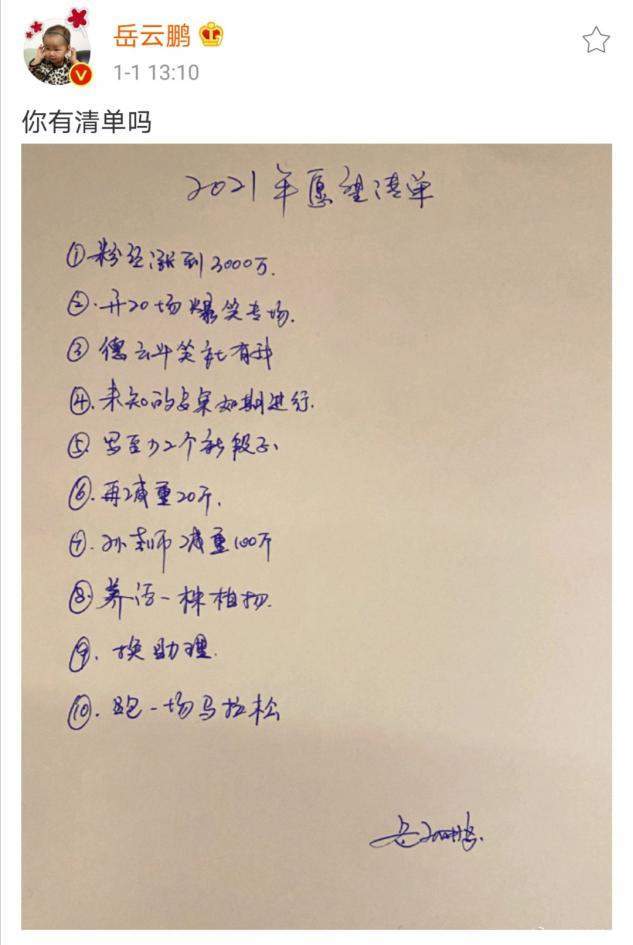 岳云鹏
1-1 13:10
你有清单吗
2021年愿望清单
①粉丝涨到3000万.
②.开20场爆笑专场.
③德云斗笑社有我
④.未知的安桌如期进行.
⑤写至少2个新段子.
⑥.再减重20斤.
⑦.孙老师减重100斤
⑧养活一株植物.
⑨.换助理.
⑩.跑一场马拉松
岳云鹏.